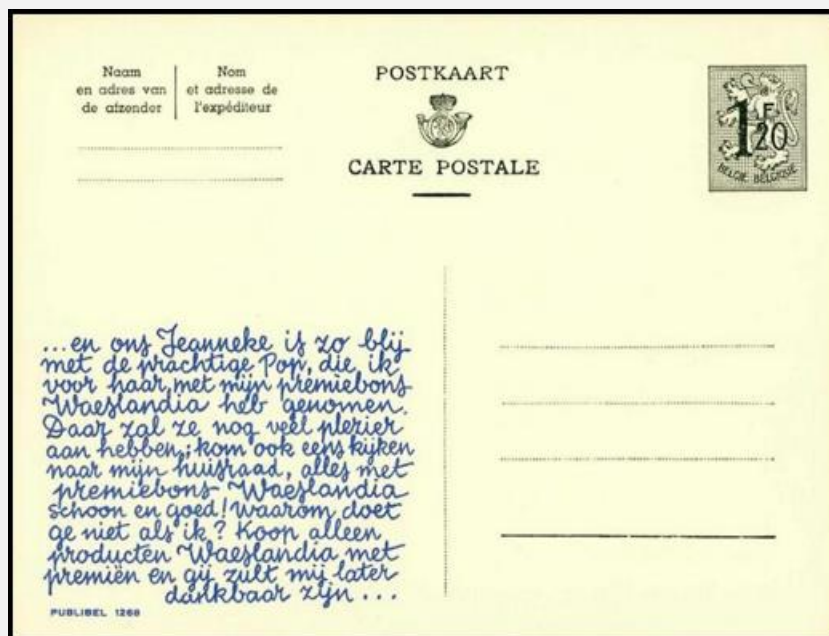 Naam
en adres van
de afzender
Nom
et adresse de
l'expéditeur
POSTKAART
CARTE POSTALE
1F.
20
BELGIE BELGIQUE
...en ons Jeanneke is zo blij
met de prachtige Pop, die ik
voor haar met mijn premiebons
Waeslandia heb genomen.
Daar zal ze nog veel plezier
aan hebben; kom ook eens kijken
naar mijn huisraad, alles met
premiebons Waeslandia
schoon en goed! Waarom doet
ge niet als ik? Koop alleen
producten Waeslandia met
premiën en gij zult mij later
dankbaar zijn...
PUBLIBEL 1268